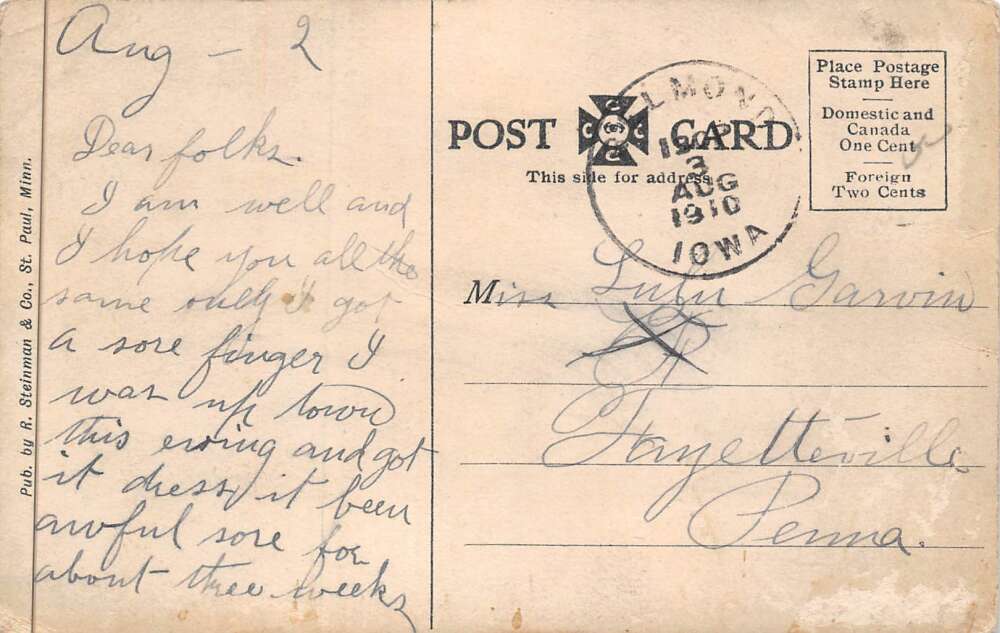 Aug - 2
Dear folks.
I am well and
I hope you all the
same only I got
a sore finger I
was up town
this evning and got
it dress it been
awful sore for
about three weeks
Pub. by R. Steinman & Co., St. Paul, Minn.
POST CARD
This side for address
LMOND
3
AUG
1910
IOWA
Place Postage
Stamp Here
Domestic and
Canada
One Cent
Foreign
Two Cents
Miss Lulu Garvin
Fayetteville
Penna.